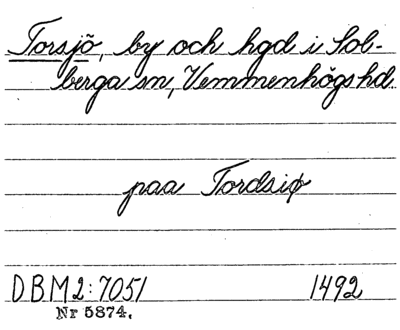 Torsjö, by och hgd i Sol-
berga sn, Vemmenhögs hd.
paa Tordsiø
DBM2:7051 1492
Nr 5874.